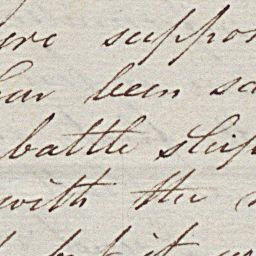 ere suppos
har been sa
battle ship
with the